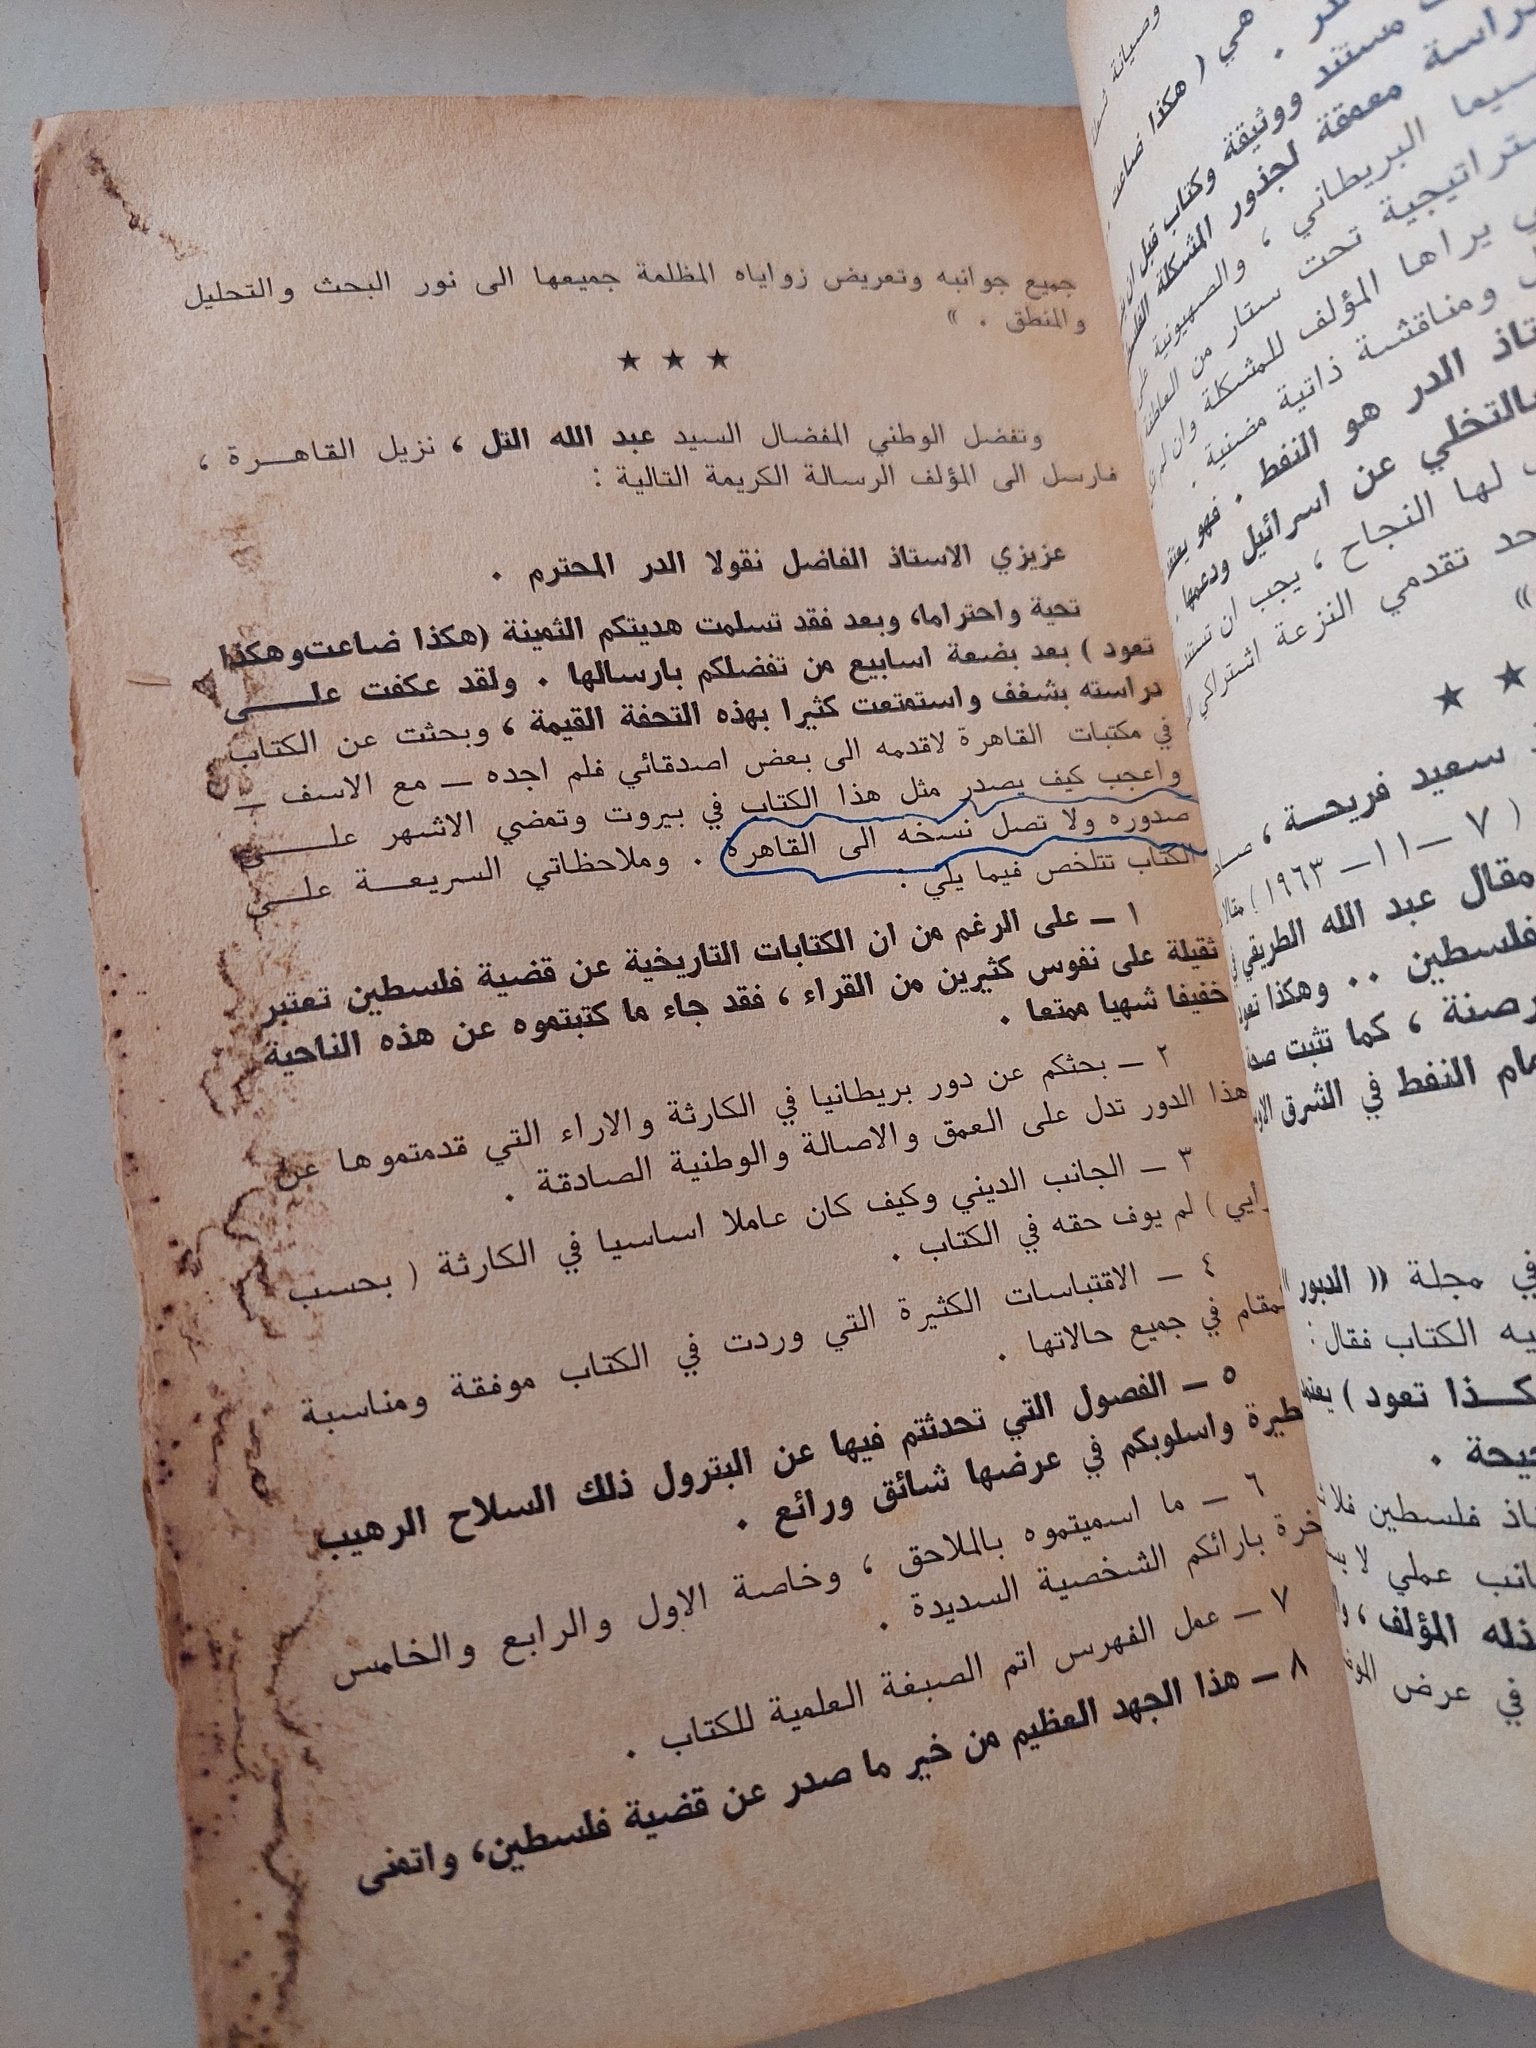 جميع جوانبه وتعريض زواياه المظلمة جميعها الى نور البحث والتحليل
والمنطق . »
★ ★ ★
وتفضل الوطني المفضال السيد عبد الله التل ، نزيل القاهـــرة ،
فارسل الى المؤلف الرسالة الكريمة التالية :
عزيزي الاستاذ الفاضل نقولا الدر المحترم .
تحية واحتراما، وبعد فقد تسلمت هديتكم الثمينة (هكذا ضاعت وهكذا
تعود ) بعد بضعة اسابيع من تفضلكم بارسالها . ولقد عكفت علــــى
دراسته بشغف واستمتعت كثيرا بهذه التحفة القيمة ، وبحثت عن الكتاب
في مكتبات القاهرة لاقدمه الى بعض اصدقائي فلم اجده ــ مع الاسف ــ
واعجب كيف يصدر مثل هذا الكتاب في بيروت وتمضي الاشهر علــــى
صدوره ولا تصل نسخه الى القاهرة . وملاحظاتي السريعـــة علــــى
الكتاب تتلخص فيما يلي :
١ ــ على الرغم من ان الكتابات التاريخية عن قضية فلسطين تعتبر
ثقيلة على نفوس كثيرين من القراء ، فقد جاء ما كتبتموه عن هذه الناحية
خفيفا شهيا ممتعا .
٢ ــ بحثكم عن دور بريطانيا في الكارثة والاراء التي قدمتموها عن
هذا الدور تدل على العمق والاصالة والوطنية الصادقة .
٣ ــ الجانب الديني وكيف كان عاملا اساسيا في الكارثة ( بحسب
رأيي ) لم يوف حقه في الكتاب .
٤ ــ الاقتباسات الكثيرة التي وردت في الكتاب موفقة ومناسبة
للمقام في جميع حالاتها .
٥ ــ الفصول التي تحدثتم فيها عن البترول ذلك السلاح الرهيب
واسلوبكم في عرضها شائق ورائع .
٦ ــ ما اسميتموه بالملاحق ، وخاصة الاول والرابع والخامس
بارائكم الشخصية السديدة .
٧ ــ عمل الفهرس اتم الصبغة العلمية للكتاب .
٨ ــ هذا الجهد العظيم من خير ما صدر عن قضية فلسطين، واتمنى
وصيانة
هي ( هكذا ضاعت
مستند ووثيقة وكتاب قبل ان
معمقة لجذور المشكلة
البريطاني ، والصهيونية
تحت ستار من
يراها المؤلف للمشكلة وان لم
ومناقشة ذاتية مضنية .
الدر هو النفط . فهو
بالتخلي عن اسرائيل ودعمها
لها النجاح ، يجب ان
تقدمي النزعة اشتراكي
»
★ ★
سعيد فريحـــة ،
( ٧ ــ ١١ ــ ١٩٦٣ )
مقال عبد الله الطريقي في
فلسطين .. وهكذا تعود
، كما تثبت
النفط في الشرق
في مجلة « الدبور »
الكتاب فقال :
تعود )
.
فلسطين
عملي لا
المؤلف ،
في عرض